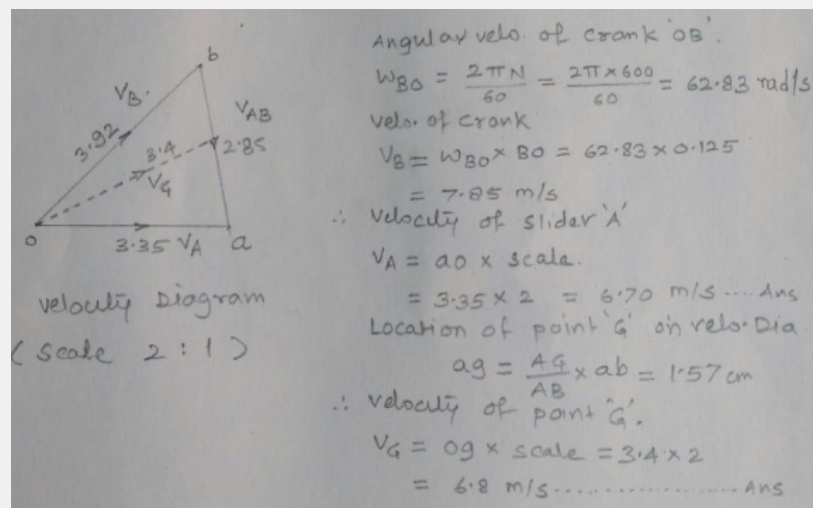 b
V_B.
V_AB
3.92
3.4
2.85
V_G
o
3.35 V_A a
Velocity Diagram
(Scale 2:1)
Angular velo. of crank 'OB'.
W_BO = 2πN/60 = 2π×600/60 = 62.83 rad/s
Velo. of Crank
V_B = W_BO × BO = 62.83 × 0.125
= 7.85 m/s
∴ Velocity of slider 'A'
V_A = ao × scale.
= 3.35 × 2 = 6.70 m/s .... Ans
Location of point 'G' on velo. Dia
ag = AG/AB × ab = 1.57 cm
∴ Velocity of point 'G'.
V_G = og × scale = 3.4 × 2
= 6.8 m/s .................... Ans